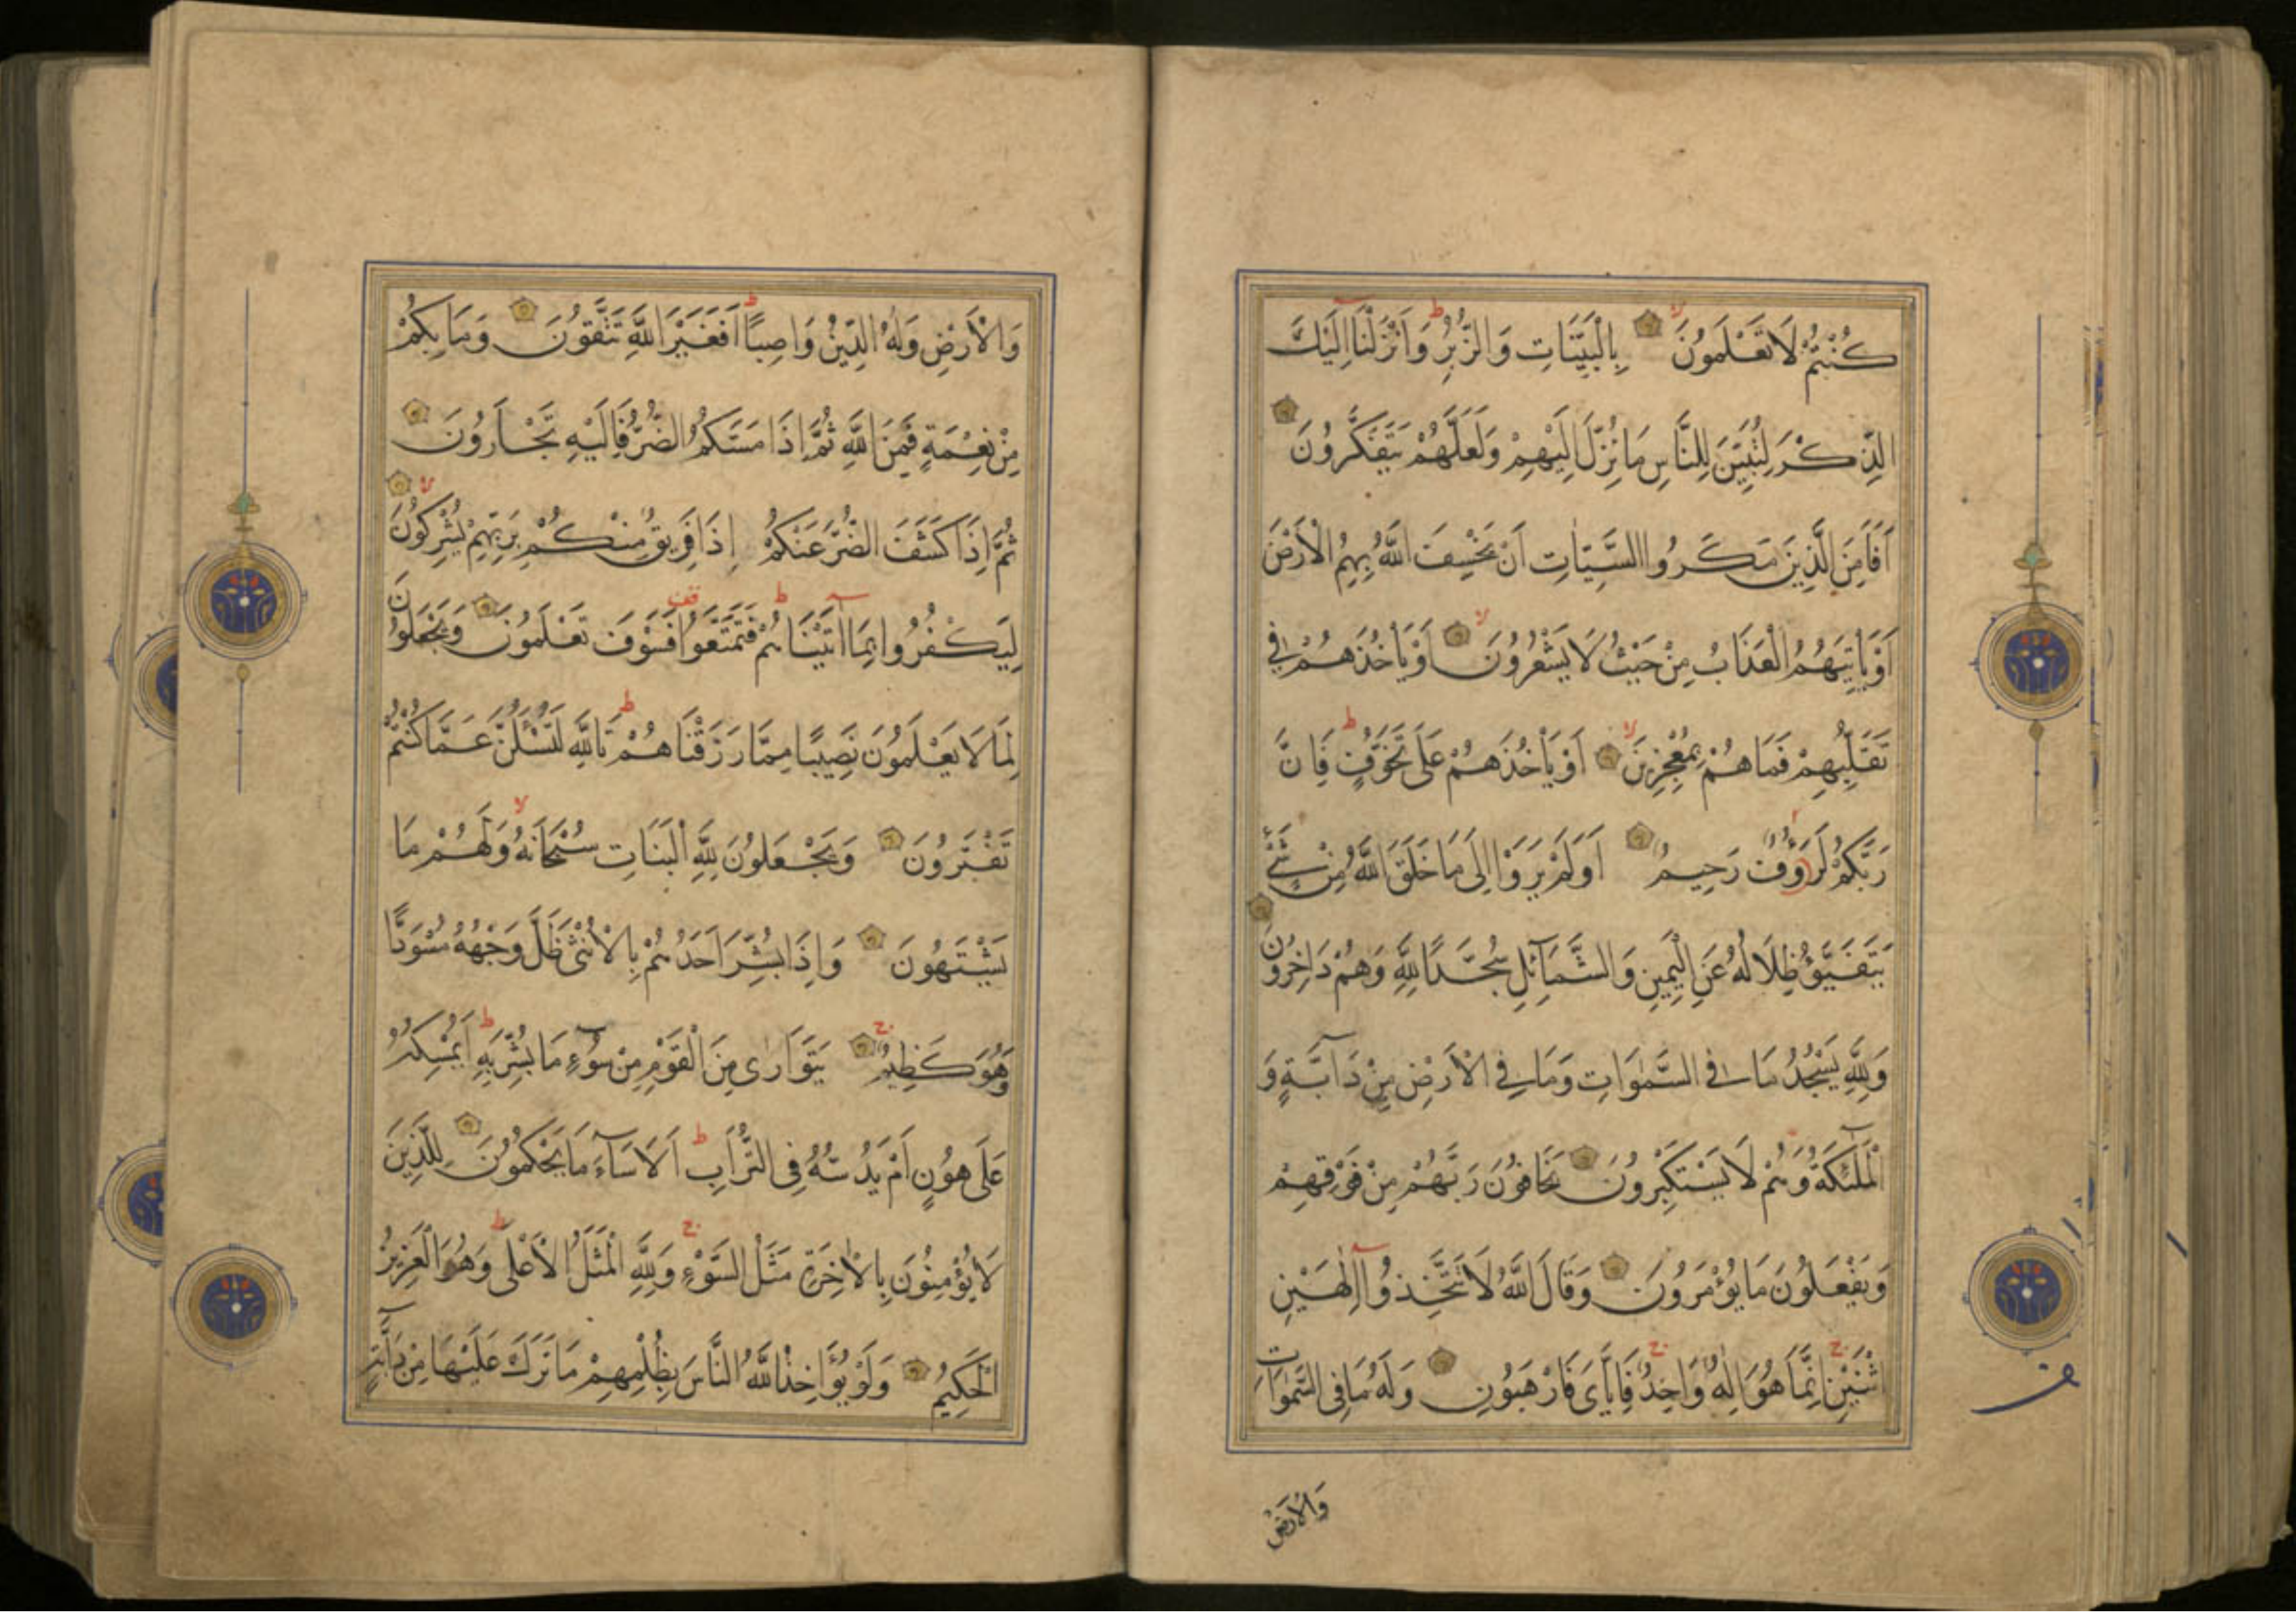 كُنْتُمْ لَا تَعْلَمُونَ بِالْبَيِّنَاتِ وَالزُّبُرِ وَأَنْزَلْنَا إِلَيْكَ
الذِّكْرَ لِتُبَيِّنَ لِلنَّاسِ مَا نُزِّلَ إِلَيْهِمْ وَلَعَلَّهُمْ يَتَفَكَّرُونَ
اَفَاَمِنَ الَّذِينَ مَكَرُوا السَّيِّاٰتِ اَنْ يَخْسِفَ اللَّهُ بِهِمُ الْاَرْضَ
اَوْ يَأْتِيَهُمُ الْعَذَابُ مِنْ حَيْثُ لَا يَشْعُرُونَ اَوْ يَأْخُذَهُمْ فِي
تَقَلُّبِهِمْ فَمَا هُمْ بِمُعْجِزِينَ اَوْ يَأْخُذَهُمْ عَلَى تَخَوُّفٍ فَاِنَّ
رَبَّكُمْ لَرَؤُفٌ رَحِيمٌ اَوَلَمْ يَرَوْا اِلَى مَا خَلَقَ اللَّهُ مِنْ شَيْءٍ
يَتَفَيَّؤُ ظِلَالُهُ عَنِ الْيَمِينِ وَالشَّمَآئِلِ سُجَّدًا لِلَّهِ وَهُمْ دَاخِرُونَ
وَلِلَّهِ يَسْجُدُ مَا فِي السَّمٰوَاتِ وَمَا فِي الْاَرْضِ مِنْ دَآبَّةٍ وَ
الْمَلٰٓئِكَةُ وَهُمْ لَا يَسْتَكْبِرُونَ يَخَافُونَ رَبَّهُمْ مِنْ فَوْقِهِمْ
وَيَفْعَلُونَ مَا يُؤْمَرُونَ وَقَالَ اللَّهُ لَا تَتَّخِذُوا اِلٰهَيْنِ
اثْنَيْنِ اِنَّمَا هُوَ اِلٰهٌ وَاحِدٌ فَاِيَّايَ فَارْهَبُونِ وَلَهُ مَا فِي السَّمٰوَاتِ
وَالْاَرْضِ
وَالْاَرْضِ وَلَهُ الدِّينُ وَاصِبًا اَفَغَيْرَ اللَّهِ تَتَّقُونَ وَمَا بِكُمْ
مِنْ نِعْمَةٍ فَمِنَ اللَّهِ ثُمَّ اِذَا مَسَّكُمُ الضُّرُّ فَاِلَيْهِ تَجْاَرُونَ
ثُمَّ اِذَا كَشَفَ الضُّرَّ عَنْكُمْ اِذَا فَرِيقٌ مِنْكُمْ بِرَبِّهِمْ يُشْرِكُونَ
لِيَكْفُرُوا بِمَا اٰتَيْنَاهُمْ فَتَمَتَّعُوا فَسَوْفَ تَعْلَمُونَ وَيَجْعَلُونَ
لِمَا لَا يَعْلَمُونَ نَصِيبًا مِمَّا رَزَقْنَاهُمْ تَاللَّهِ لَتُسْئَلُنَّ عَمَّا كُنْتُمْ
تَفْتَرُونَ وَيَجْعَلُونَ لِلَّهِ الْبَنَاتِ سُبْحَانَهُ وَلَهُمْ مَا
يَشْتَهُونَ وَاِذَا بُشِّرَ اَحَدُهُمْ بِالْاُنْثٰى ظَلَّ وَجْهُهُ مُسْوَدًّا
وَهُوَ كَظِيمٌ يَتَوَارٰى مِنَ الْقَوْمِ مِنْ سُوٓءِ مَا بُشِّرَ بِهِ اَيُمْسِكُهُ
عَلَى هُونٍ اَمْ يَدُسُّهُ فِي التُّرَابِ اَلَا سَآءَ مَا يَحْكُمُونَ لِلَّذِينَ
لَا يُؤْمِنُونَ بِالْاٰخِرَةِ مَثَلُ السَّوْءِ وَلِلَّهِ الْمَثَلُ الْاَعْلٰى وَهُوَ الْعَزِيزُ
الْحَكِيمُ وَلَوْ يُؤَاخِذُ اللَّهُ النَّاسَ بِظُلْمِهِمْ مَا تَرَكَ عَلَيْهَا مِنْ دَآبَّةٍ